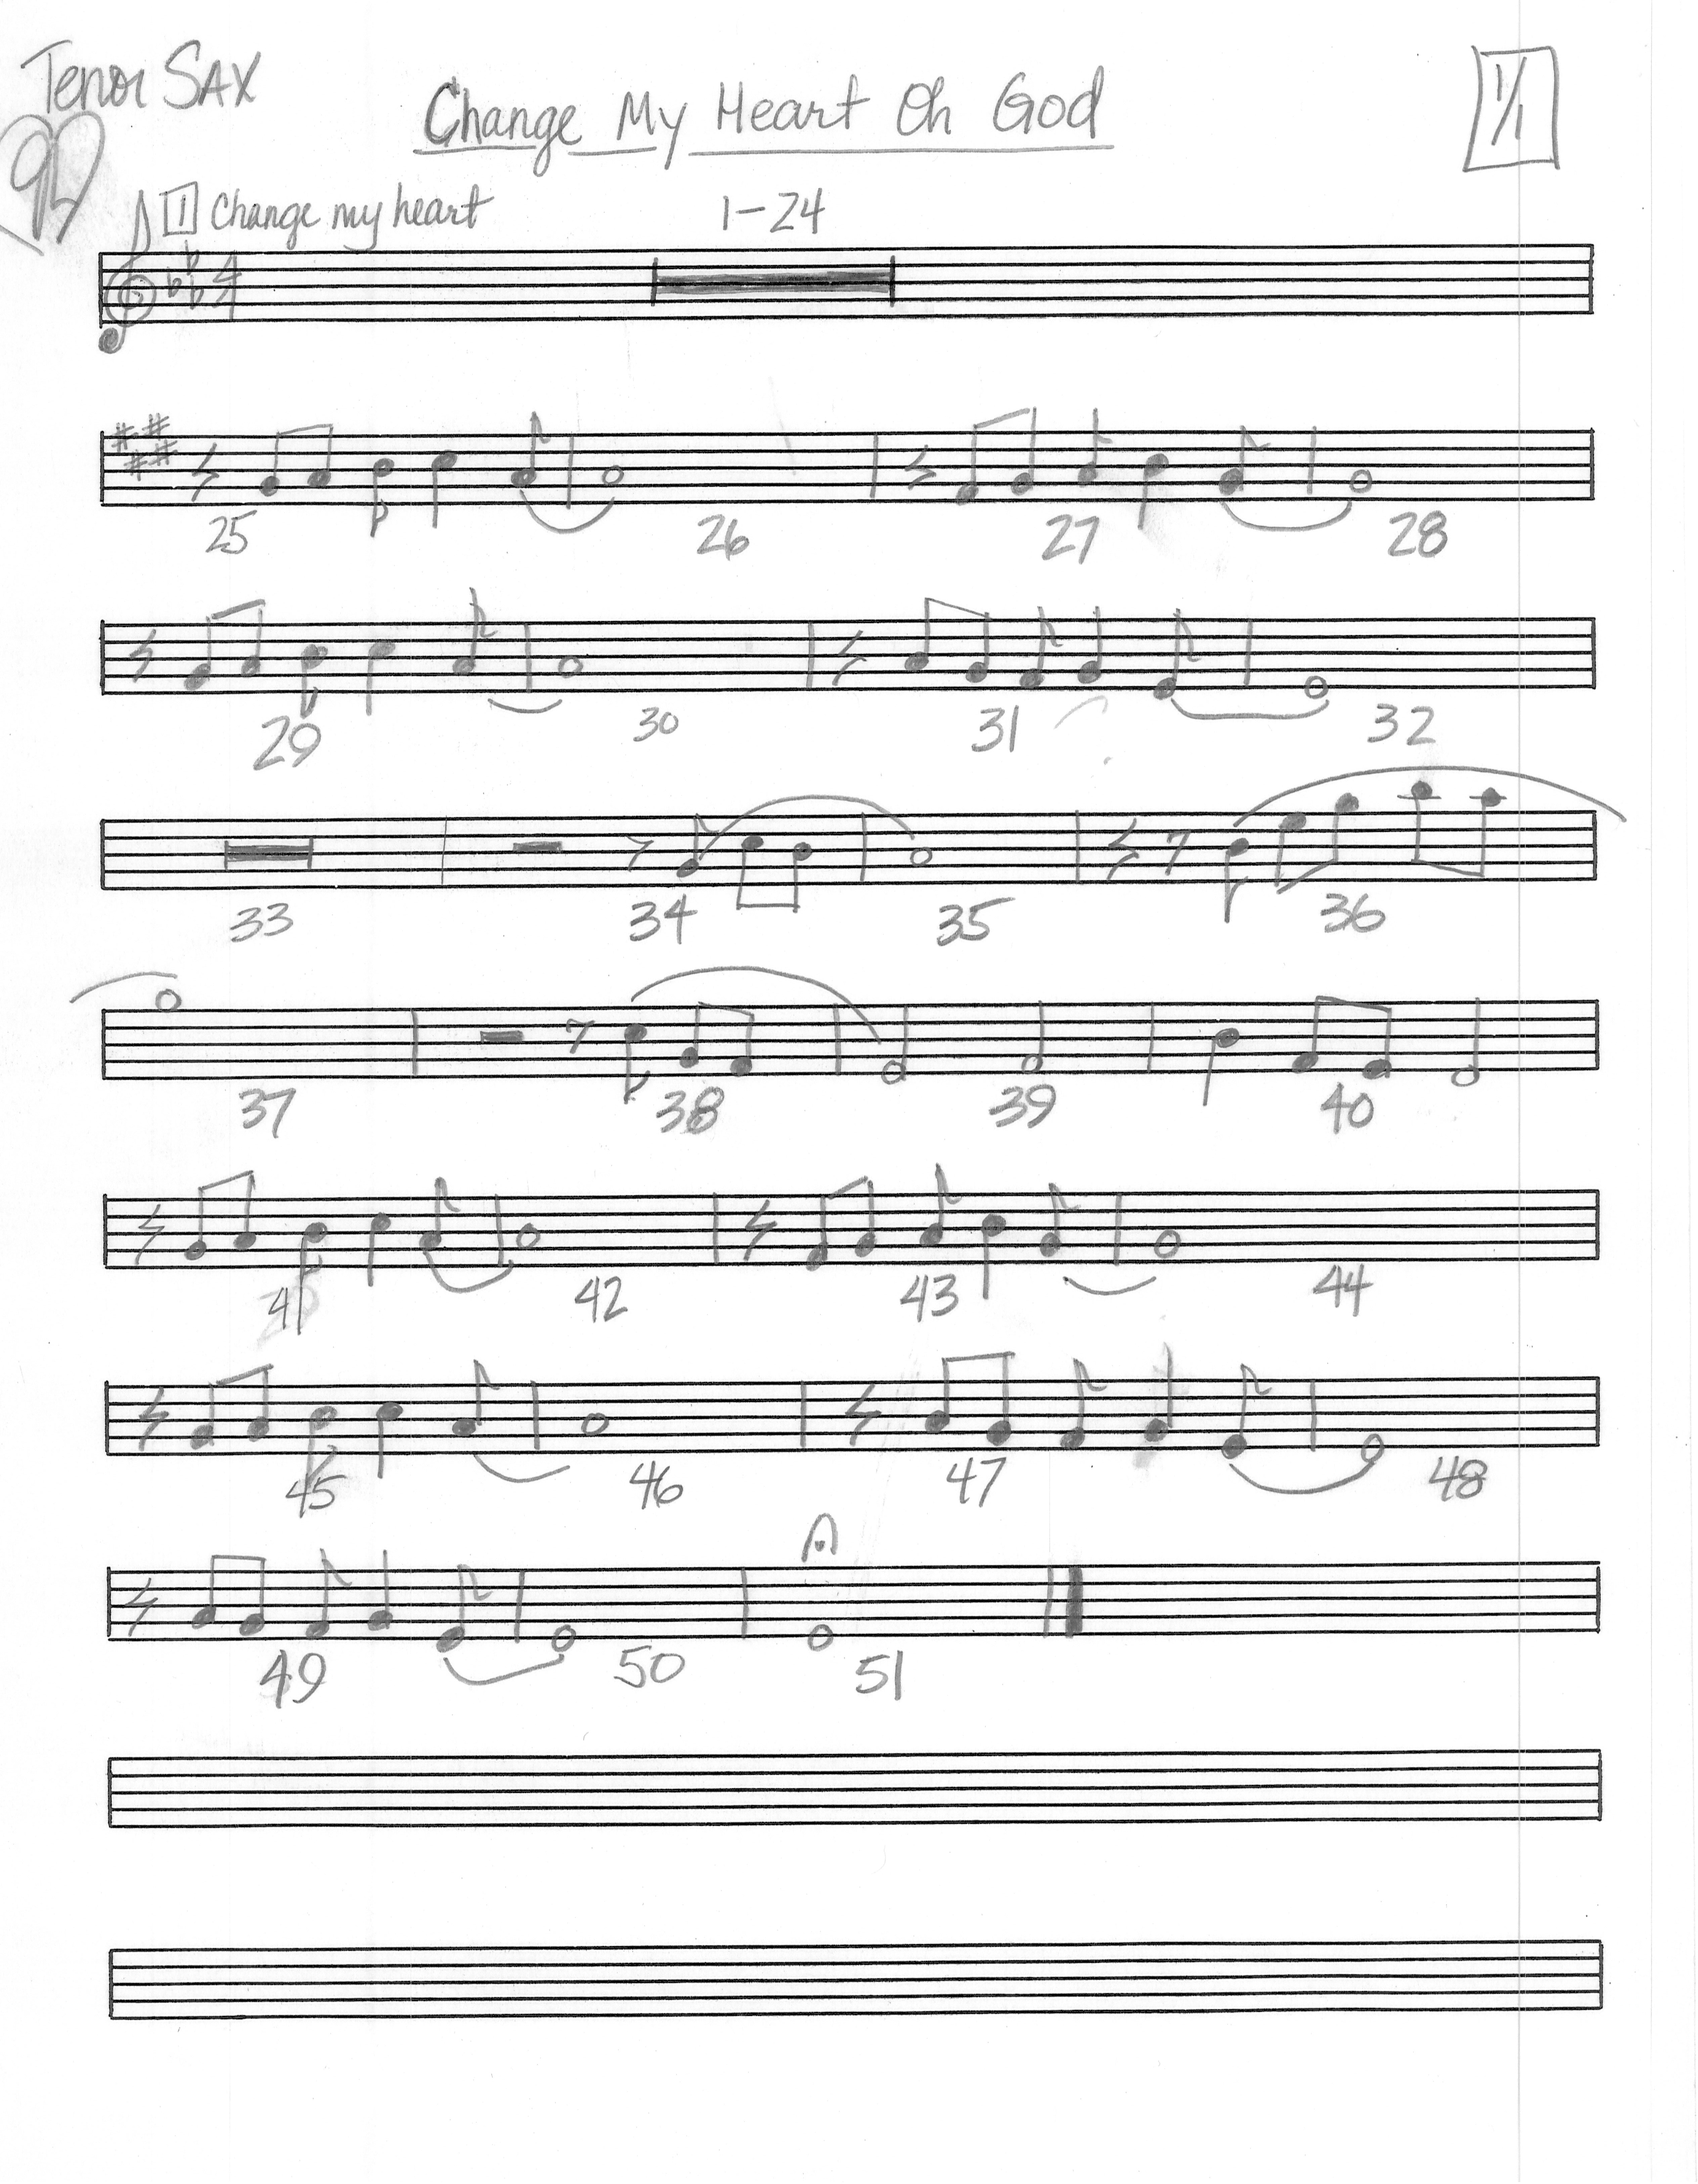 Tenor SAX
Change My Heart Oh God
1/1
92
1 Change my heart 1-24
4/4
25 26 27 28
29 30 31 32
33 34 35 36
37 38 39 40
41 42 43 44
45 46 47 48
49 50 51